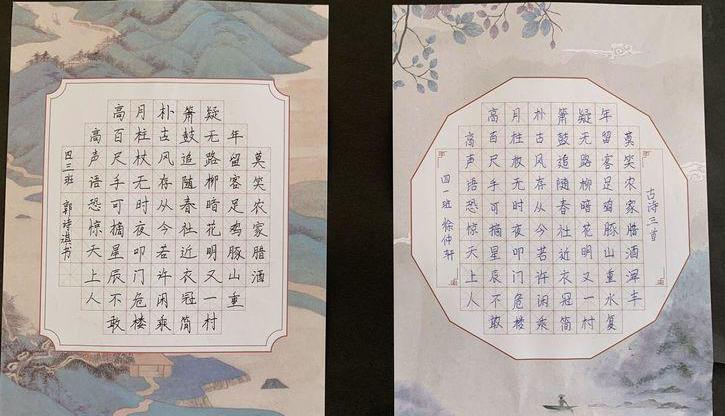 莫笑农家腊酒
年留客足鸡豚山重
疑无路柳暗花明又一村
箫鼓追随春社近衣冠简
朴古风存从今若许闲乘
月柱杖无时夜叩门危楼
高百尺手可摘星辰不敢
高声语恐惊天上人
四三班 郭诗淇书
古诗三首
莫笑农家腊酒浑丰
年留客足鸡豚山重水复
疑无路柳暗花明又一村
箫鼓追随春社近衣冠简
朴古风存从今若许闲乘
月柱杖无时夜叩门危楼
高百尺手可摘星辰不敢
高声语恐惊天上人
四一班 徐仲轩